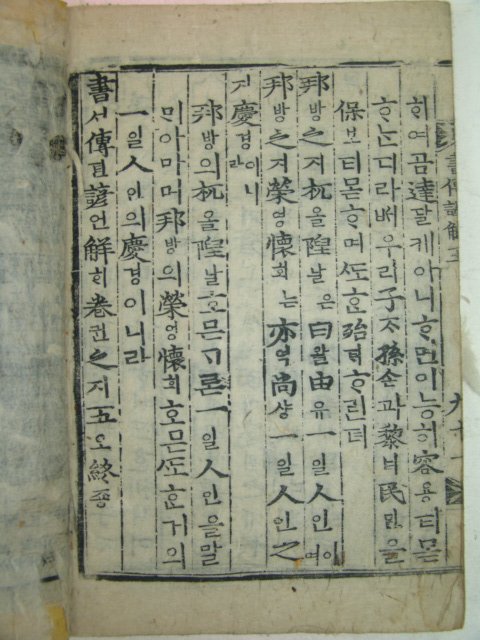 書傳諺解五
ᄒᆡ여곰達달케아니ᄒᆞ면이능히容용티몯
ᄒᆞᄂᆞᆫ디라ᄡᅥ우리子ᄌᆞ孫손과黎려民민을
保보티몯ᄒᆞ며ᄯᅩᄒᆞᆫ殆ᄐᆡᄒᆞ린뎌
邦방之지杌올隉날은曰왈由유一일人인이며
邦방之지榮영懷회ᄂᆞᆫ亦역尙샹一일人인之
지慶경이니라
邦방의杌올隉날호믄一일人인을말
믜아마며邦방의榮영懷회호믄ᄯᅩᄒᆞᆫ거의
一일人인의慶경이니라
書셔傳뎐諺언解ᄒᆡ卷권之지五오終죵